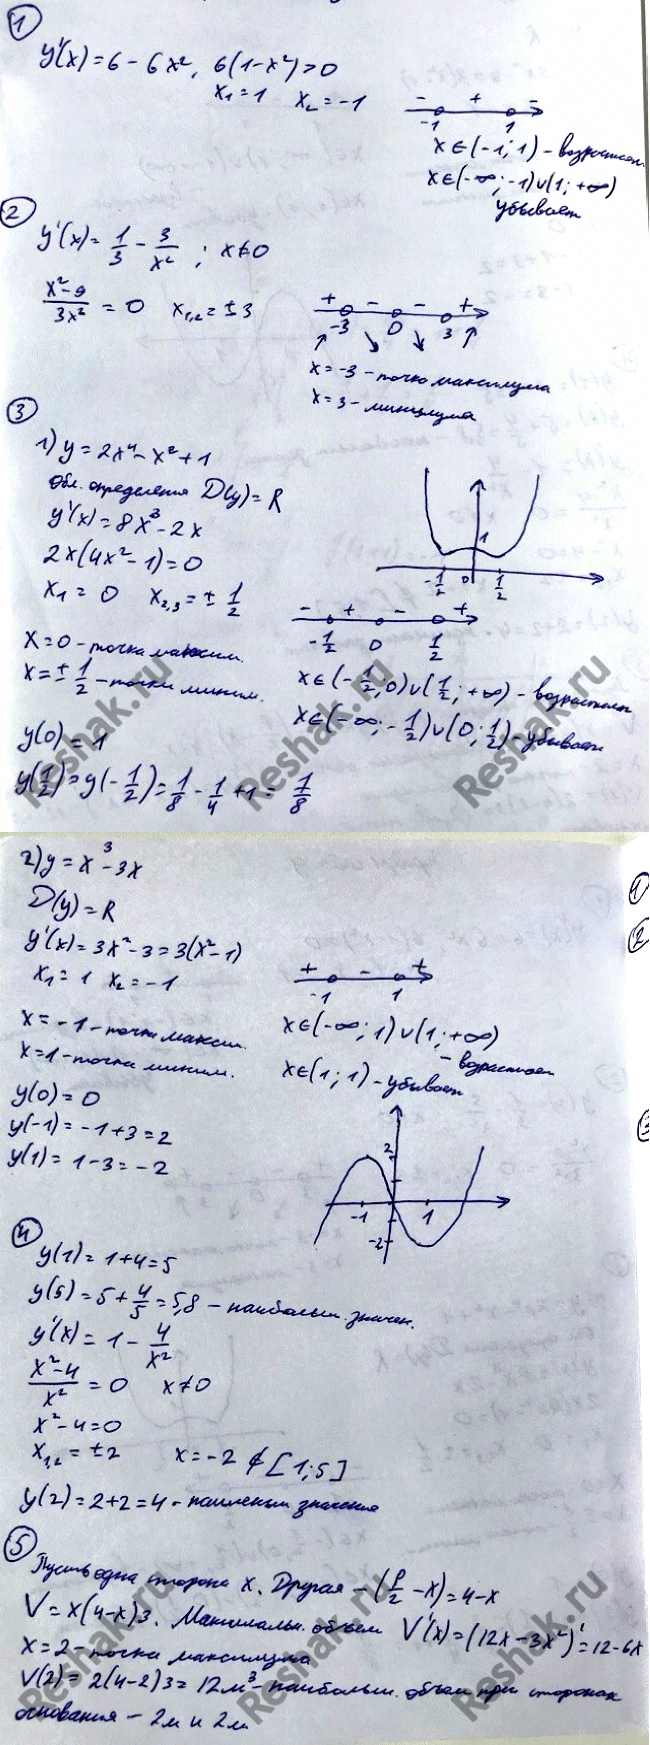 1
y'(x) = 6 - 6x², 6(1-x²)>0
x₁ = 1 x₂ = -1
- + -
-1 1
x∈(-1; 1) - возрастает
x∈(-∞; -1)∪(1; +∞)
убывает
2
y'(x) = 1/3 - 3/x² ; x≠0
(x²-9)/(3x²) = 0 x₁,₂ = ±3
+ - - +
-3 0 3
x = -3 - точка максимума
x = 3 - минимума
3
1) y = 2x⁴ - x² + 1
Обл. определения D(y) = R
y'(x) = 8x³ - 2x
2x(4x² - 1) = 0
x₁ = 0 x₂,₃ = ± 1/2
1
-1/2 0 1/2
- + - +
-1/2 0 1/2
x = 0 - точка максим.
x = ± 1/2 - точки миним.
x∈(-1/2; 0)∪(1/2; +∞) - возрастает
x∈(-∞; -1/2)∪(0; 1/2) - убывает
y(0) = 1
y(1/2) = y(-1/2) = 1/8 - 1/4 + 1 = 7/8
Reshak.ru
Reshak.ru
Reshak.ru
2) y = x³ - 3x
D(y) = R
y'(x) = 3x² - 3 = 3(x² - 1)
x₁ = 1 x₂ = -1
+ - +
-1 1
x = -1 - точка максим.
x = 1 - точка миним.
x∈(-∞; 1)∪(1; +∞)
- возрастает
x∈(1; 1) - убывает
y(0) = 0
y(-1) = -1 + 3 = 2
y(1) = 1 - 3 = -2
2
-1 1
-2
1
2
3
4
y(1) = 1 + 4 = 5
y(5) = 5 + 4/5 = 5,8 - наибольш. значен.
y'(x) = 1 - 4/x²
(x²-4)/x² = 0 x≠0
x² - 4 = 0
x₁,₂ = ±2 x = -2 ∉ [1; 5]
y(2) = 2 + 2 = 4 - наименьш значение
5
Пусть одна сторона x. Другая - (P/2 - x) = 4 - x
V = x(4-x)3. Максимальн. объем V'(x) = (12x - 3x²)' = 12 - 6x
x = 2 - точка максимума
V(2) = 2(4-2)3 = 12м³ - наибольш. объем при сторонах
основания - 2м и 2м
Reshak.ru
Reshak.ru
Reshak.ru